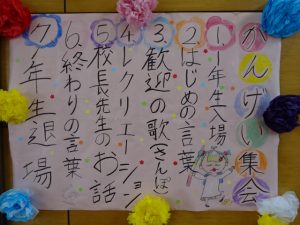 かんげい集会
1 1年生入場
2はじめの言葉
3.歓迎の歌(さんぽ)
4.レクリエーション
5.校長先生のお話
6.終わりの言葉
7 1年生退場